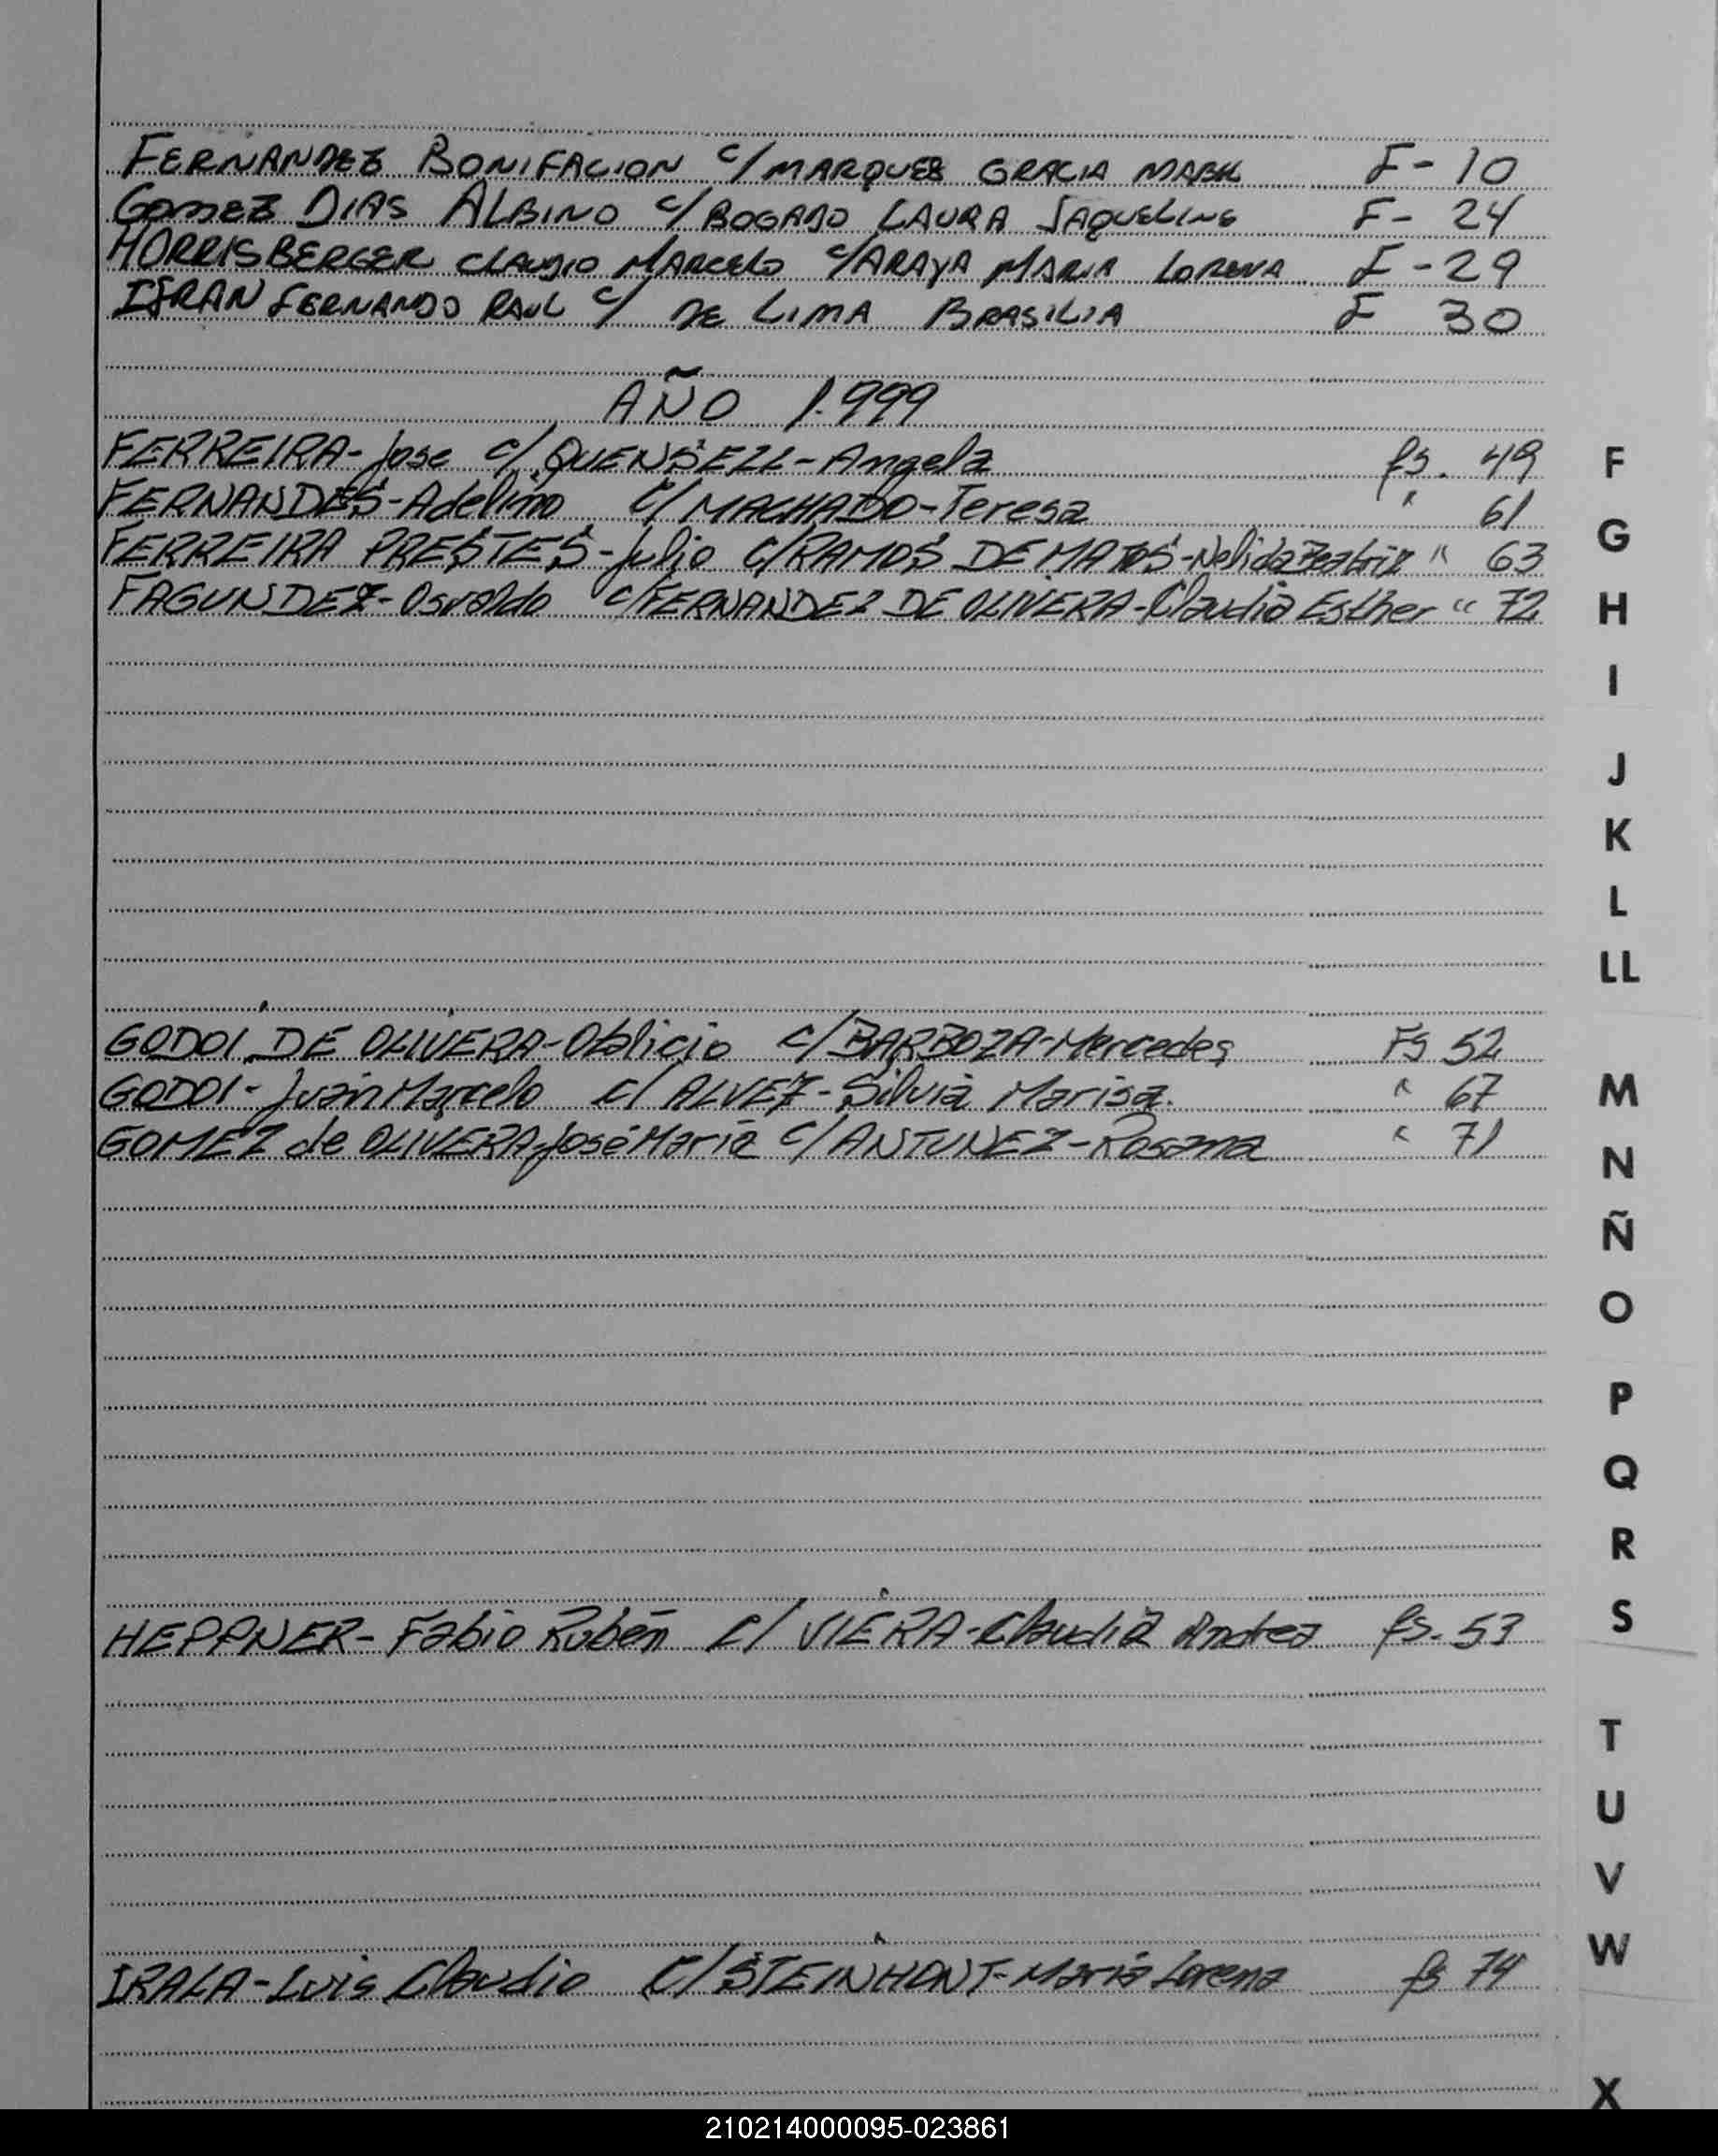 FERNANDEZ BONIFACION c/ MARQUES GRACIA MABEL F-10
GOMEZ DIAS ALBINO c/ BOGADO LAURA JAQUELINE F- 24
HORRISBERGER CLAUDIO MARCELO c/ ARAYA MARIA LORENA F-29
IFRAN FERNANDO RAUL c/ DE LIMA BRASILIA F 30
AÑO 1.999
FERREIRA-Jose c/ QUENSELL-Angela fs. 49
FERNANDES-Adelino c/ MACHADO-Teresa " 61
FERREIRA PRESTES-Julio c/ RAMOS DE MATOS-Nelida Beatriz " 63
FAGUNDEZ-Osvaldo c/ FERNANDEZ DE OLIVERA-Claudia Esther " 72
GODOI DE OLIVERA- c/ BARBOZA-Mercedes Fs 52
GODOI-Juan Marcelo c/ ALVEZ-Silvia Marisa. " 67
GOMEZ de OLIVERA-José Maria c/ ANTUNEZ-Rosana " 71
HEPPNER-Fabio Rubén c/ VIERA-Claudia Andrea fs. 53
IRALA-Luis Claudio c/ STEINHONT-Maria Lorena fs 74
F
G
H
I
J
K
L
LL
M
N
Ñ
O
P
Q
R
S
T
U
V
W
X
210214000095-023861